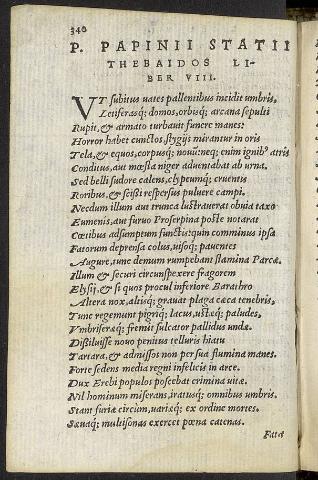 340
P. PAPINII STATII
THEBAIDOS LI-
BER VIII.
VT subitus uates pallentibus incidit umbris,
Letiferasq; domos, orbisq; arcana sepulti
Rupit, & armato turbauit funere manes:
Horror habet cunctos, stygijs mirantur in oris
Tela, & equos, corpusq; nouū: neq; enim ignib° atris
Conditus, aut mœsta niger aduentabat ab urna,
Sed belli sudore calens, clypeumq; cruentis
Roribus, & scissi respersus puluere campi.
Necdum illum aut trunca lustrauerat obuia taxo
Eumenis, aut furuo Proserpina poste notarat
Cœtibus adsumptum functis: quin comminus ipsa
Fatorum deprensa colus, uisoq; pauentes
Augure, tunc demum rumpebant stamina Parcæ.
Illum & securi circunspexere fragorem
Elysij, & si quos procul inferiore Barathro
Altera nox, alijsq; grauat plaga cæca tenebris,
Tunc regemunt pigriq; lacus, ustæq; paludes,
Vmbriferæq; fremit sulcator pallidus undæ.
Dissiluisse nouo penitus telluris hiatu
Tartara, & admissos non per sua flumina manes.
Forte sedens media regni infelicis in arce.
Dux Erebi populos poscebat crimina uitæ.
Nil hominum miserans, iratusq; omnibus umbris.
Stant furiæ circùm, uariæq; ex ordine mortes.
Sæuaq; multisonas exercet pœna catenas.
Fata